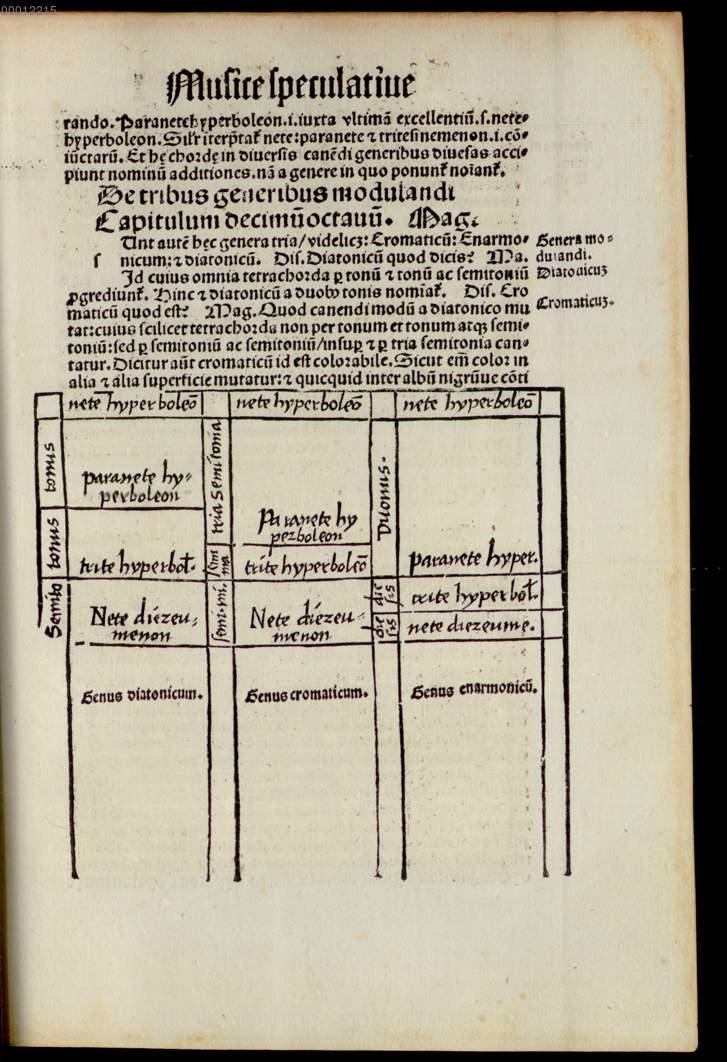 00012215
Musice speculatiue
rando. Paranetehyperboleon .i. iuxta vltimã excellentiũ .s. nete⸗
hyperboleon. Sil'r iterp̃tat᷑ nete: paranete ⁊ tritesinemenon .i. cõ⸗
iũctarũ. Et hę chordę in diuersis canẽdi generibus diuesas acci⸗
piunt nominũ additiones. nã a genere in quo ponunt᷑ noĩant᷑.
De tribus generibus modulandi
Capitulum decimũoctauũ. Mag.
Unt autẽ hęc genera tria/videlicꝫ: Cromaticũ: Enarmo⸗
s nicum: ⁊ diatonicũ. Dis. Diatonicũ quod dicis? Ma.
Genera mo⸗
dulandi.
Id cuius omnia tetrachorda ꝑ tonũ ⁊ tonũ ac semitoniũ
Diatonicuꝫ
ꝓgrediunt᷑. Hinc ⁊ diatonicũ a duobꝰ tonis nomiat᷑. Dis. Cro
maticũ quod est? Mag. Quod canendi modũ a diatonico mu
Cromaticuꝫ.
tat: cuius scilicet tetrachorda non per tonum et tonum atqꝫ semi⸗
toniũ: sed ꝑ semitoniũ ac semitoniũ/insuꝑ ⁊ ꝑ tria semitonia can⸗
tatur. Dicitur aũt cromaticũ id est colorabile. Sicut em̃ color in
alia ⁊ alia superficie mutatur: ⁊ quicquid inter albũ nigrũue cõti
nete hyperboleõ
nete hyperboleõ
nete hyperboleõ
tonus
paranete hy⸗
perboleon
tria semitonia
Paranete hy
perboleon
Duonus.
paranete hyper.
tonus
trite hyperbol̃.
semi
ma
trite hyperboleõ
die
sis
trite hyperbol̃.
Semito
Nete diezeu⸗
menon
semi⸗mi.
Nete diezeu⸗
menon
die
sis
nete diezeume.
Genus diatonicum.
Genus cromaticum.
Genus enarmonicũ.